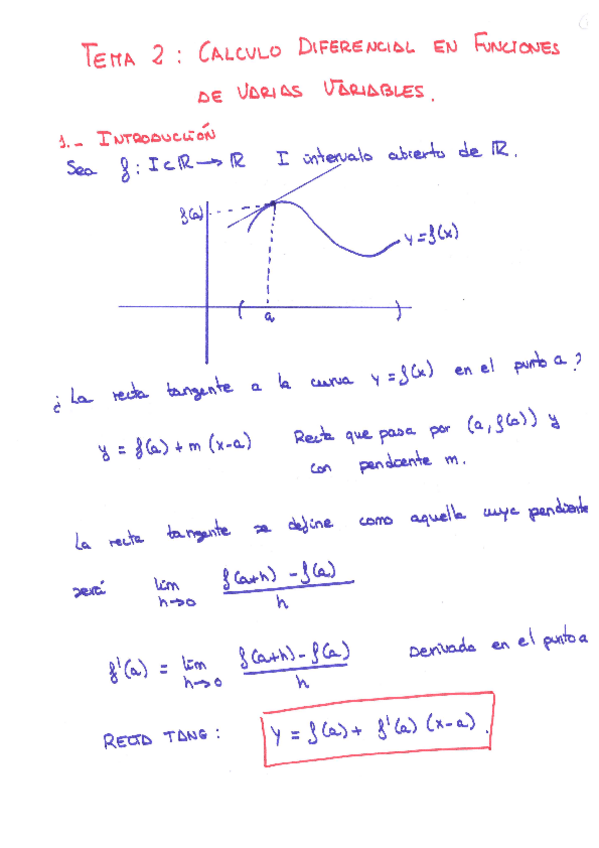 TEMA 2: CALCULO DIFERENCIAL EN FUNCIONES
DE VARIAS VARIABLES.
1.- INTRODUCCIÓN
Sea f: I ⊂ ℝ → ℝ I intervalo abierto de ℝ.
f(a)
y = f(x)
a
¿La recta tangente a la curva y = f(x) en el punto a?
y = f(a) + m (x-a) Recta que pasa por (a, f(a)) y
con pendiente m.
La recta tangente se define como aquella cuya pendiente
será lim h→0 (f(a+h) - f(a)) / h
f'(a) = lim h→0 (f(a+h) - f(a)) / h Derivada en el punto a
RECTA TANG: y = f(a) + f'(a) (x-a).